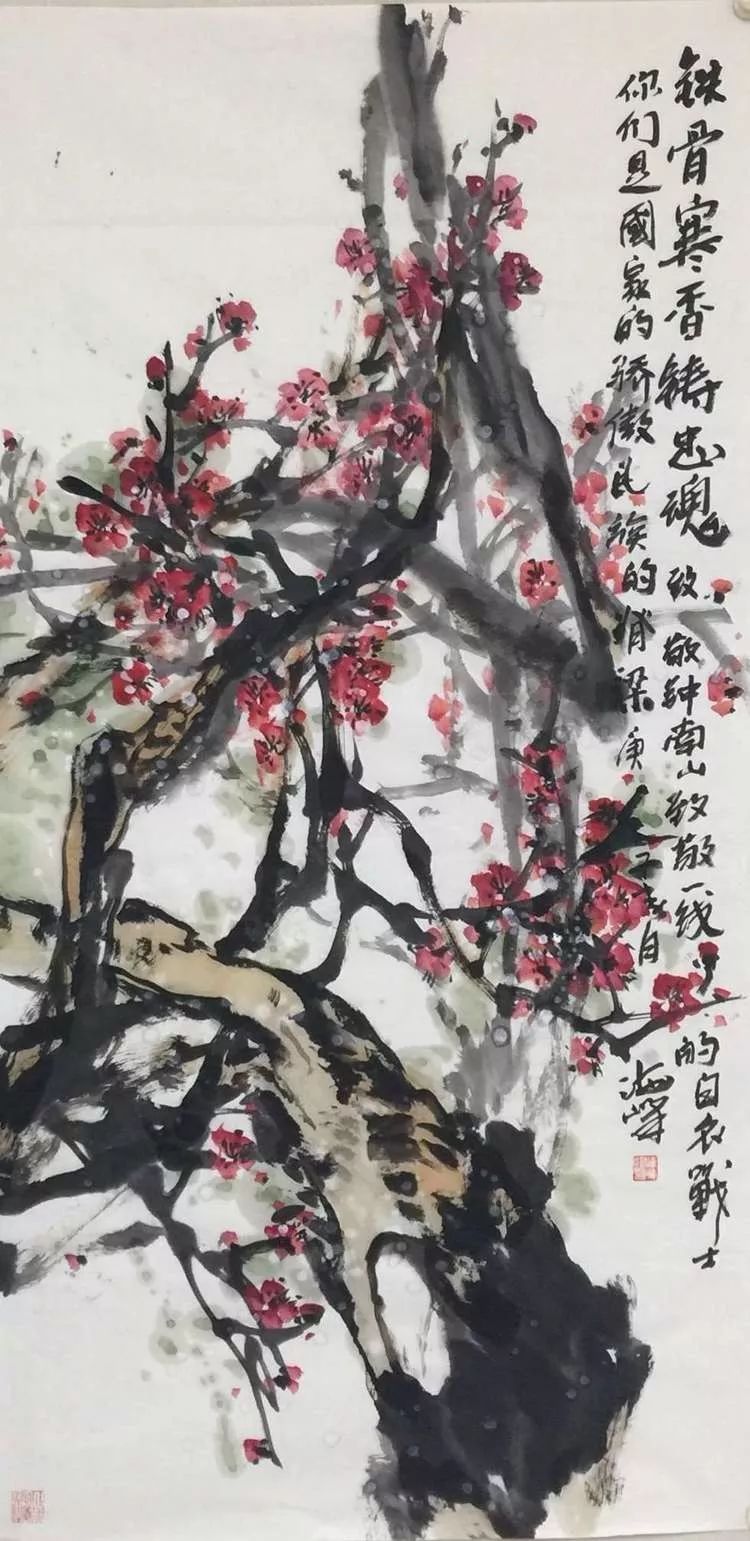 鐵骨寒香鋳忠魂 致敬钟南山致敬一线的白衣戰士
你们是國家的骄傲民族的脊梁庚子春月
海峰